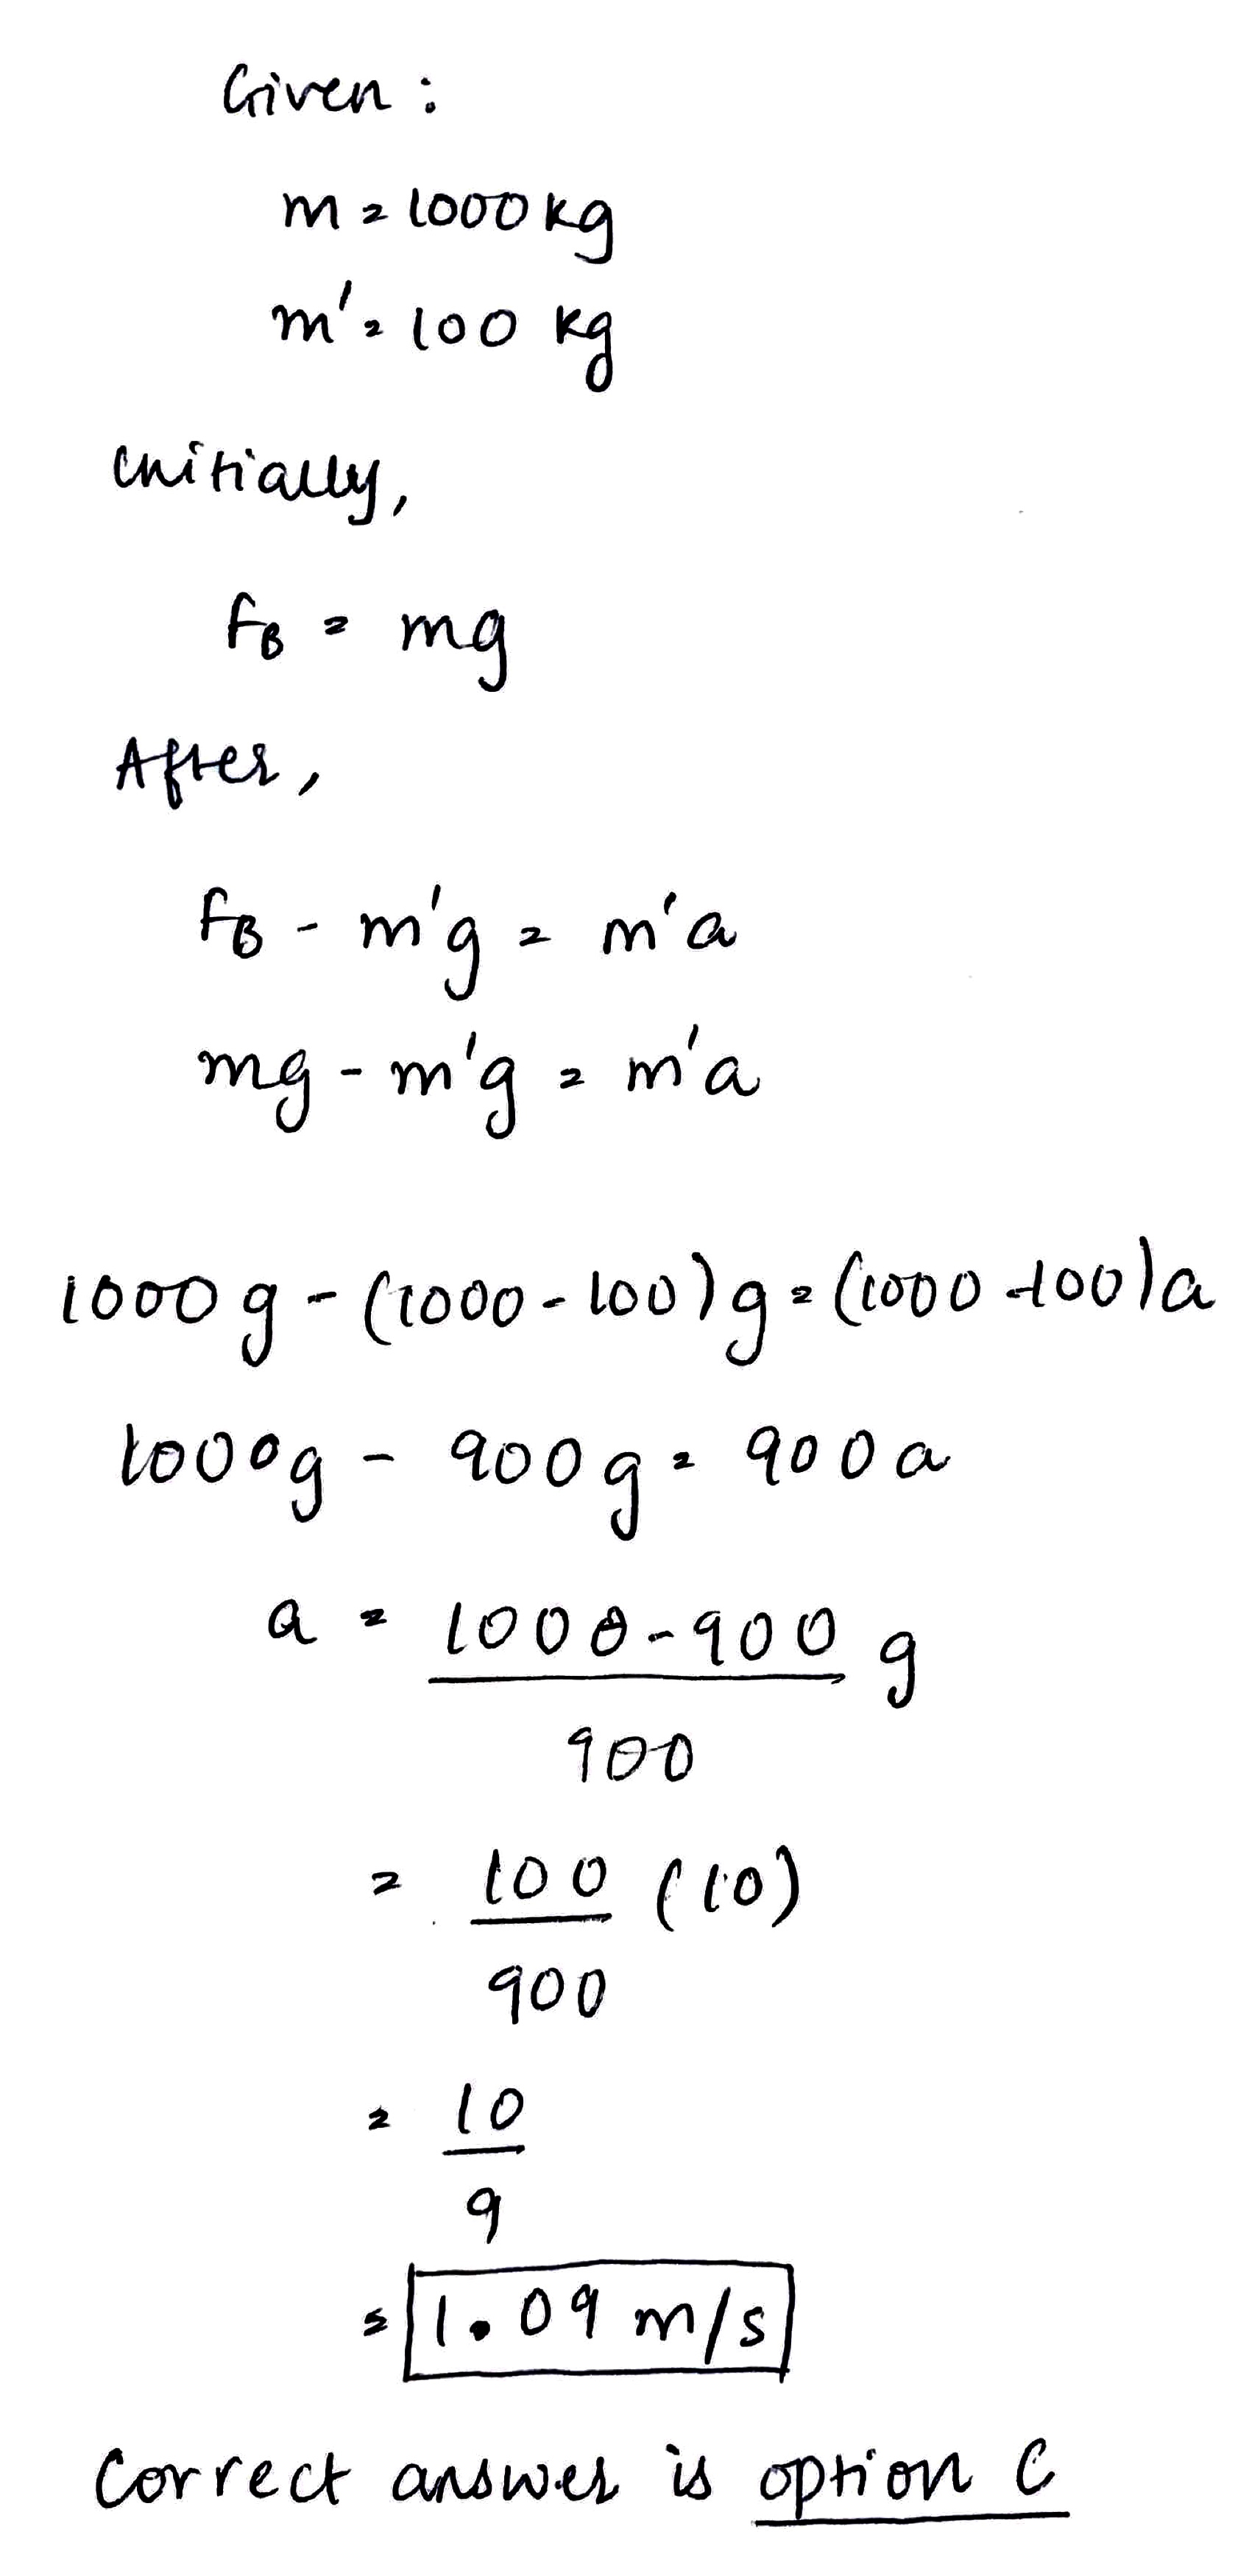 Given :
m = 1000 kg
m' = 100 kg
initially,
FB = mg
After,
FB - m'g = m'a
mg - m'g = m'a
1000 g - (1000 - 100) g = (1000 - 100) a
1000g - 900g = 900 a
a = 1000 - 900 g
900
= 100 (10)
900
= 10
9
= 1.09 m/s
Correct answer is option C